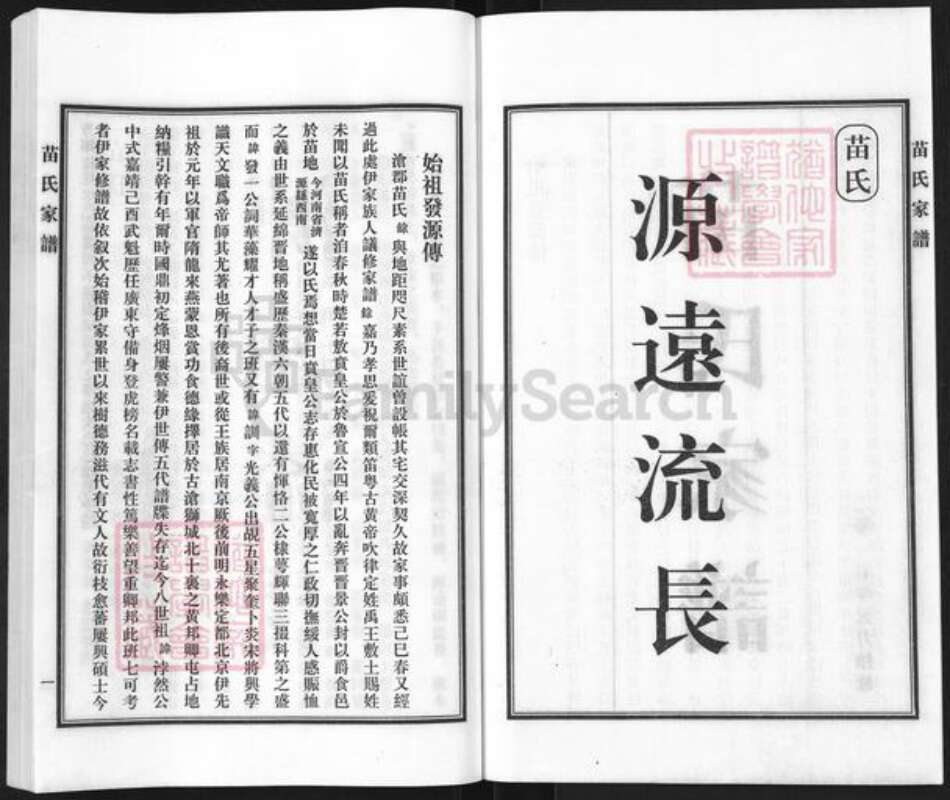 苗氏家譜
苗氏
源遠流長
始祖發源傳
滄郡苗氏餘與地距咫尺素系世誼曾設帳其宅交深契久故家事頗悉己巳春又經
過此處伊家族人議修家譜餘嘉乃孝思爰稅爾類笛粤古黄帝吹律定姓禹王敷土賜姓
未聞以苗氏稱者洎春秋時楚若敖賁皇公於魯宣公四年以亂奔晋晋景公封以爵食邑
於苗地今河南省濟源縣西南遂以氏焉想當日賁皇公志存惠化民被寬厚之仁政切撫綏人感賑恤
之義由世系延綿晋地稱盛歷秦漢六朝五代以還有惲恪二公棣萼輝聯三掇科第之盛
而諱發一公詞華藻耀才人才子之班又有諱訓字光義公出覘五星聚奎卜炎宋將興學
識天文職爲帝師其尤著也所有後裔世或從王族居南京厥後前明永樂定都北京伊先
祖於元年以軍官隋龍來燕蒙恩賞功食德緣擇居於古滄獅城北十裏之黄邦卿屯占地
納糧引幹有年爾時國鼎初定烽烟屢警兼伊世傳五代譜牒失存迄今八世祖諱悙然公
中式嘉靖己酉武魁歷任廣東守備身登虎榜名載志書性篤樂善望重卿邦此班七可考
者伊家修譜故依叙次始稽伊家累世以來樹德務滋代有文人故衍枝愈蕃屢興碩士今
苗氏家譜
一
FamilySearch